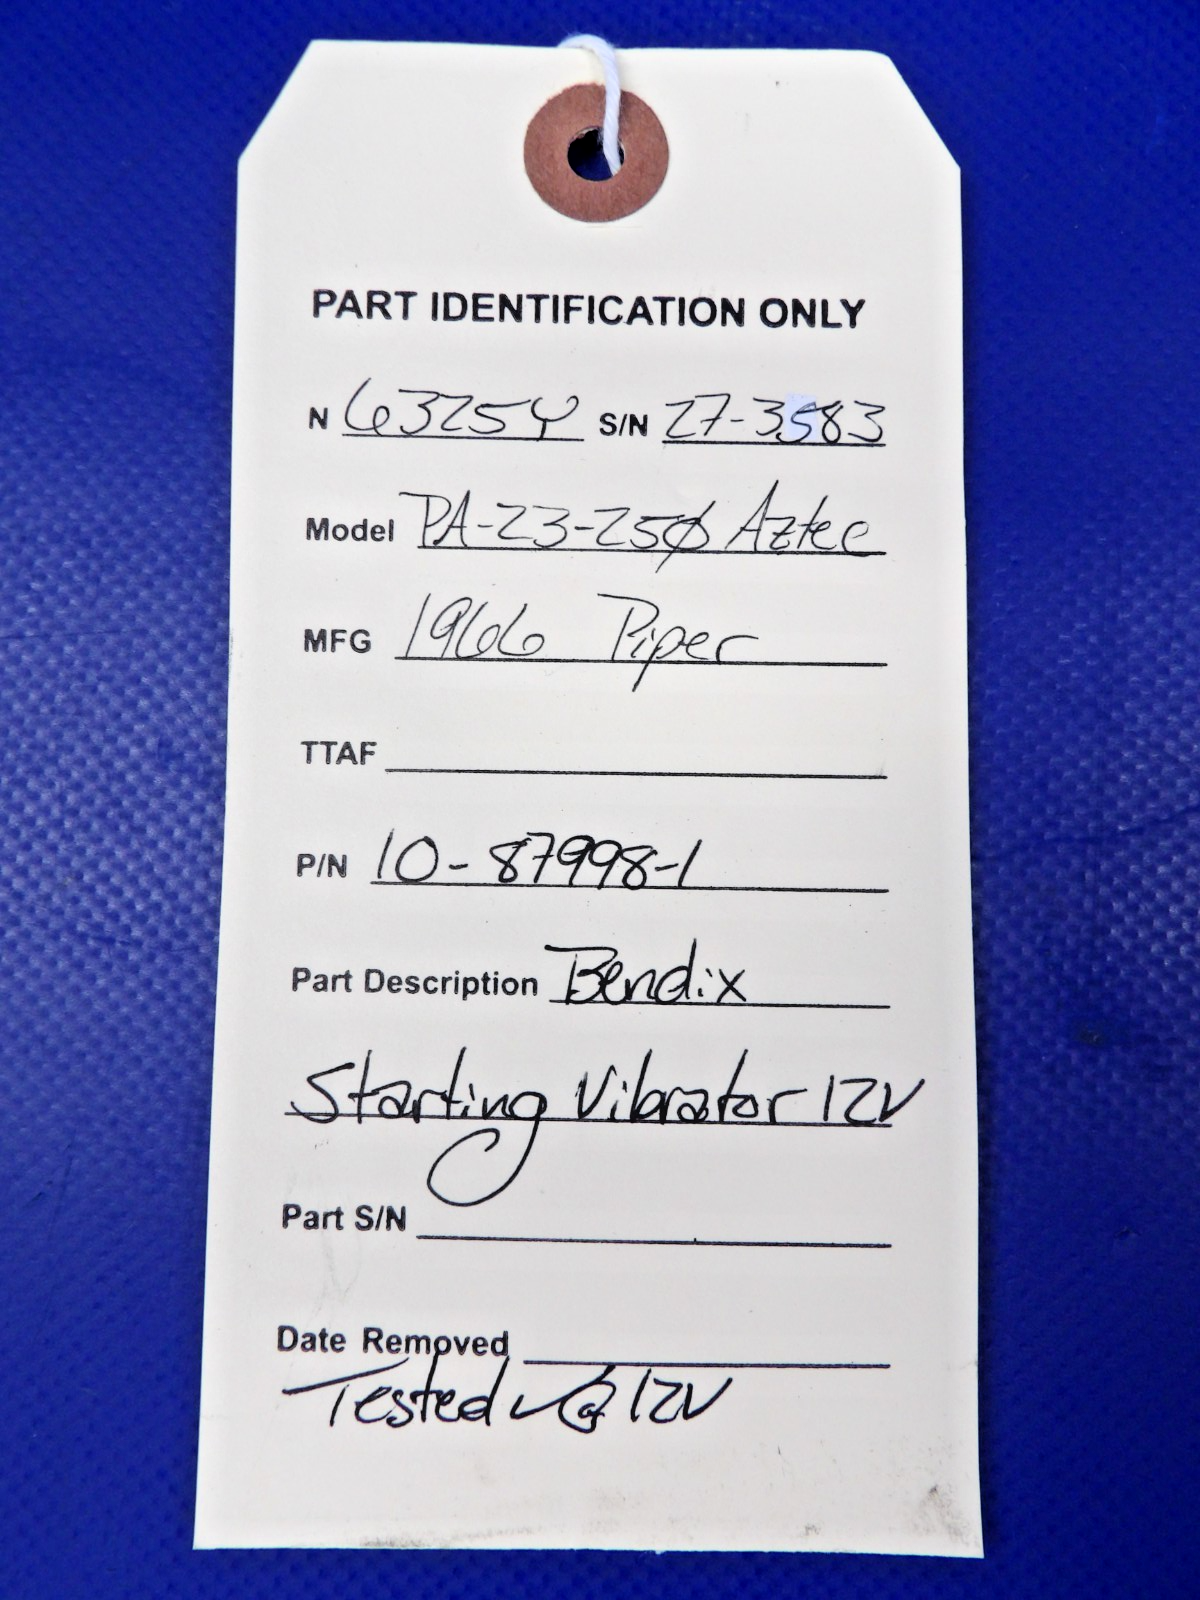 PART IDENTIFICATION ONLY
N 6325Y S/N 27-3583
Model PA-23-25Ø Aztec
MFG 1966 Piper
TTAF
P/N 10-87998-1
Part Description Bendix
Starting Vibrator 12V
Part S/N
Date Removed
Tested ✓ @ 12V